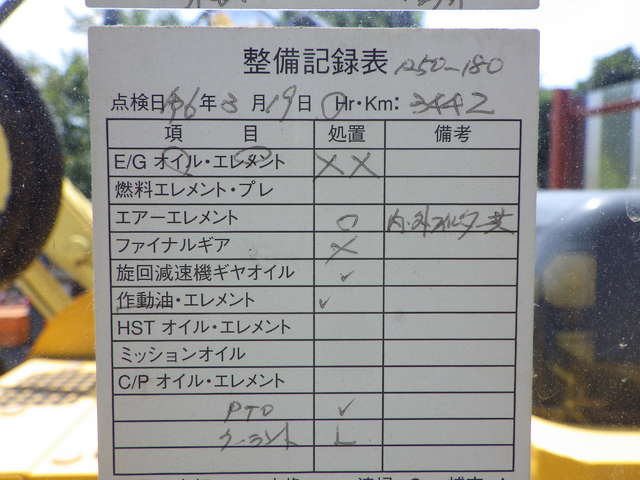 整備記録表 1250-180
点検日 R6年3月19日 Hr・Km: 3442
項 目 処置 備考
E/G オイル・エレメント ××
燃料エレメント・プレ
エアーエレメント ○ 内・外フィルター共
ファイナルギア ×
旋回減速機ギヤオイル ✓
作動油・エレメント ✓
HST オイル・エレメント
ミッションオイル
C/P オイル・エレメント
PTO ✓
クーラント L